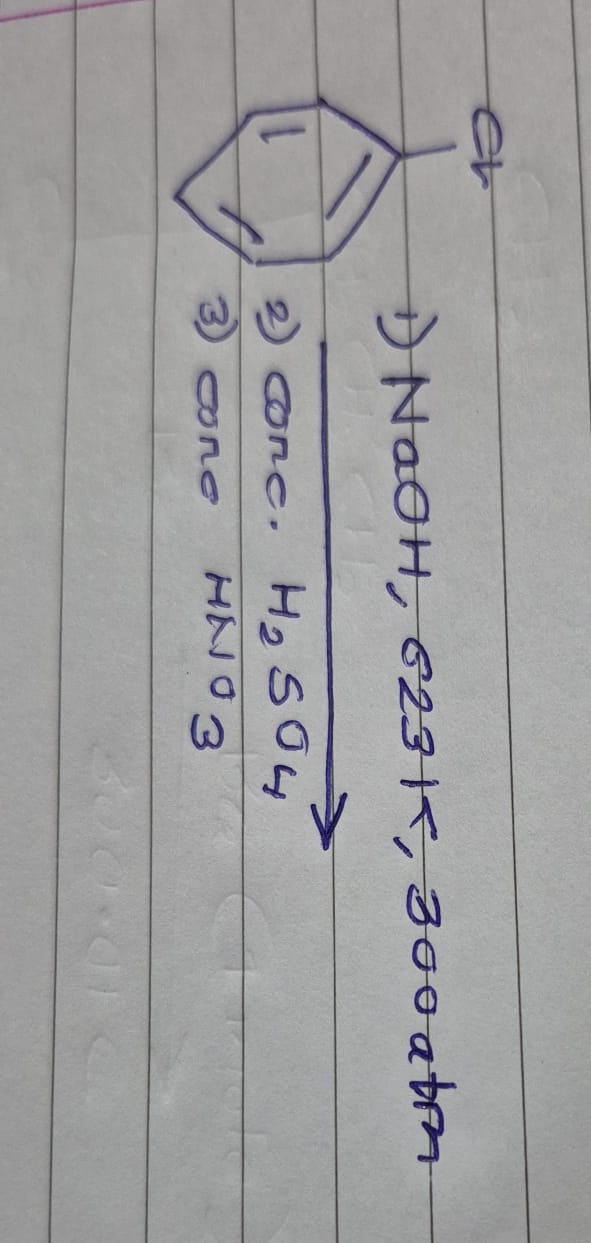 Cl
1) NaOH, 623 K, 300 atm
2) conc. H2SO4
3) conc HNO3